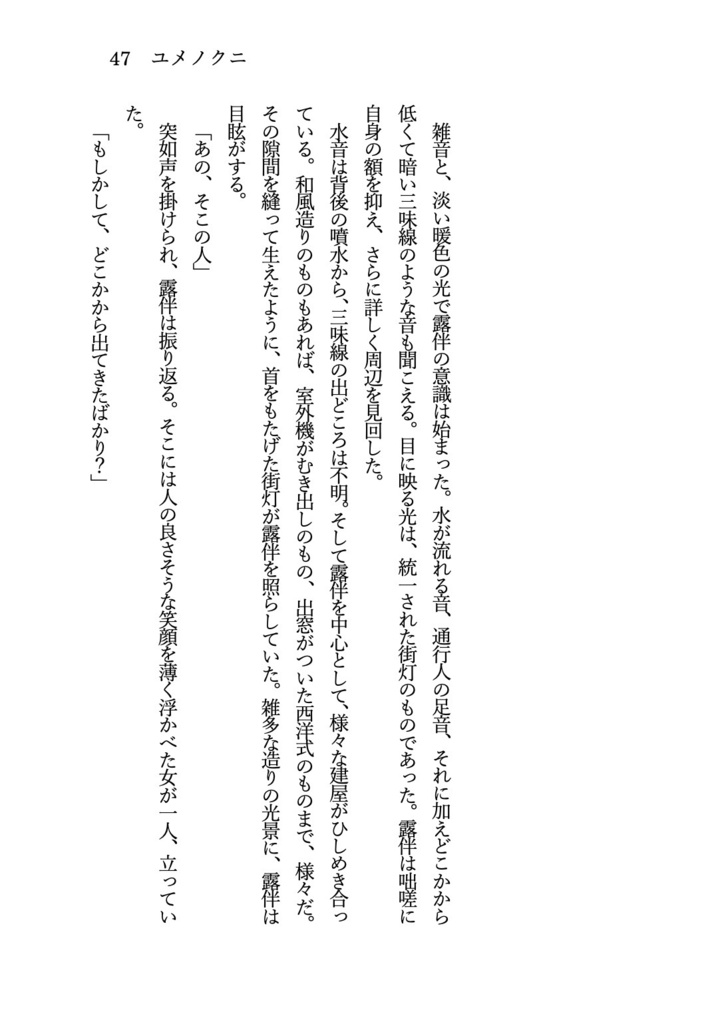 47 ユメノクニ
雑音と、淡い暖色の光で露伴の意識は始まった。水が流れる音、通行人の足音、それに加えどこかから
低くて暗い三味線のような音も聞こえる。目に映る光は、統一された街灯のものであった。露伴は咄嗟に
自身の額を抑え、さらに詳しく周辺を見回した。
水音は背後の噴水から、三味線の出どころは不明。そして露伴を中心として、様々な建屋がひしめき合っ
ている。和風造りのものもあれば、室外機がむき出しのもの、出窓がついた西洋式のものまで、様々だ。
その隙間を縫って生えたように、首をもたげた街灯が露伴を照らしていた。雑多な造りの光景に、露伴は
目眩がする。
「あの、そこの人」
突如声を掛けられ、露伴は振り返る。そこには人の良さそうな笑顔を薄く浮かべた女が一人、立ってい
た。
「もしかして、どこかから出てきたばかり？」